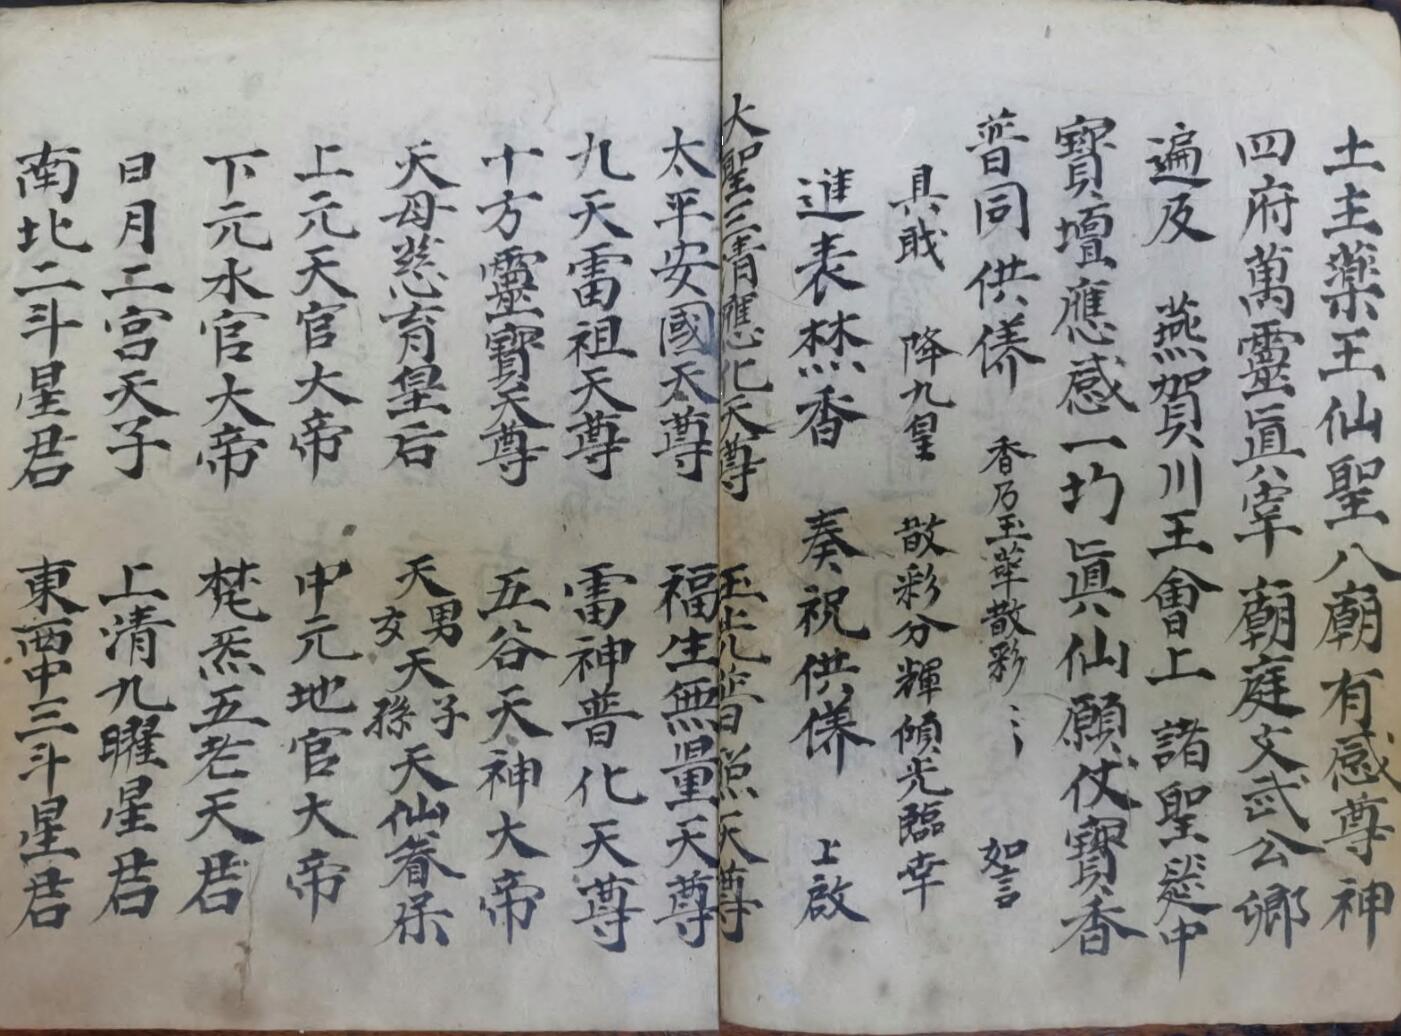 土主藥王仙聖八廟有感尊神
四府萬靈眞宰 廟庭文武公卿
遍及 燕賀川王會上 諸聖筵中
寶壇應感一切眞仙願仗寶香
普同供养 香乃玉華散彩〻〻 如言
具戝 降九皇 散彩分輝傾光臨幸
進表焚香 奏祝供养 上啟
大聖三清應化天尊 玉上九 天尊
太平安國天尊 福生無量天尊
九天雷祖天尊 雷神普化天尊
十方靈寶天尊 五谷天神大帝
天母慈育皇后 天男女天子孫天仙眷屬
上元天官大帝 中元地官大帝
下元水官大帝 梵炁五老天君
日月二宮天子 上清九曜星君
南北二斗星君 東西中三斗星君